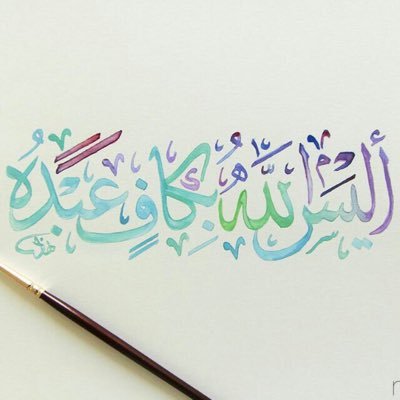 أَليسَ اللَّهُ بِكافٍ عَبْدَهُ